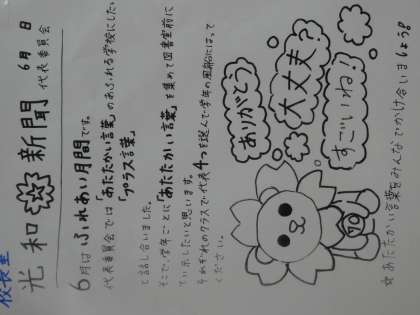 校長室
光和☆新聞
6月　日
代表委員会
6月は ふれあい月間です。
代表委員会では「あたたかい言葉」のあふれる学校にしたい
「プラス言葉」
と話し合いました。
そこで、学年ごとに「あたたかい言葉」を集めて図書室前に
てい示したいと思います。
それぞれのクラスで代表4つを選んで学年の風船にはって
ください。
ありがとう
大丈夫?
すごいね!
70
☆あたたかい言葉をみんなでかけ合いましょう